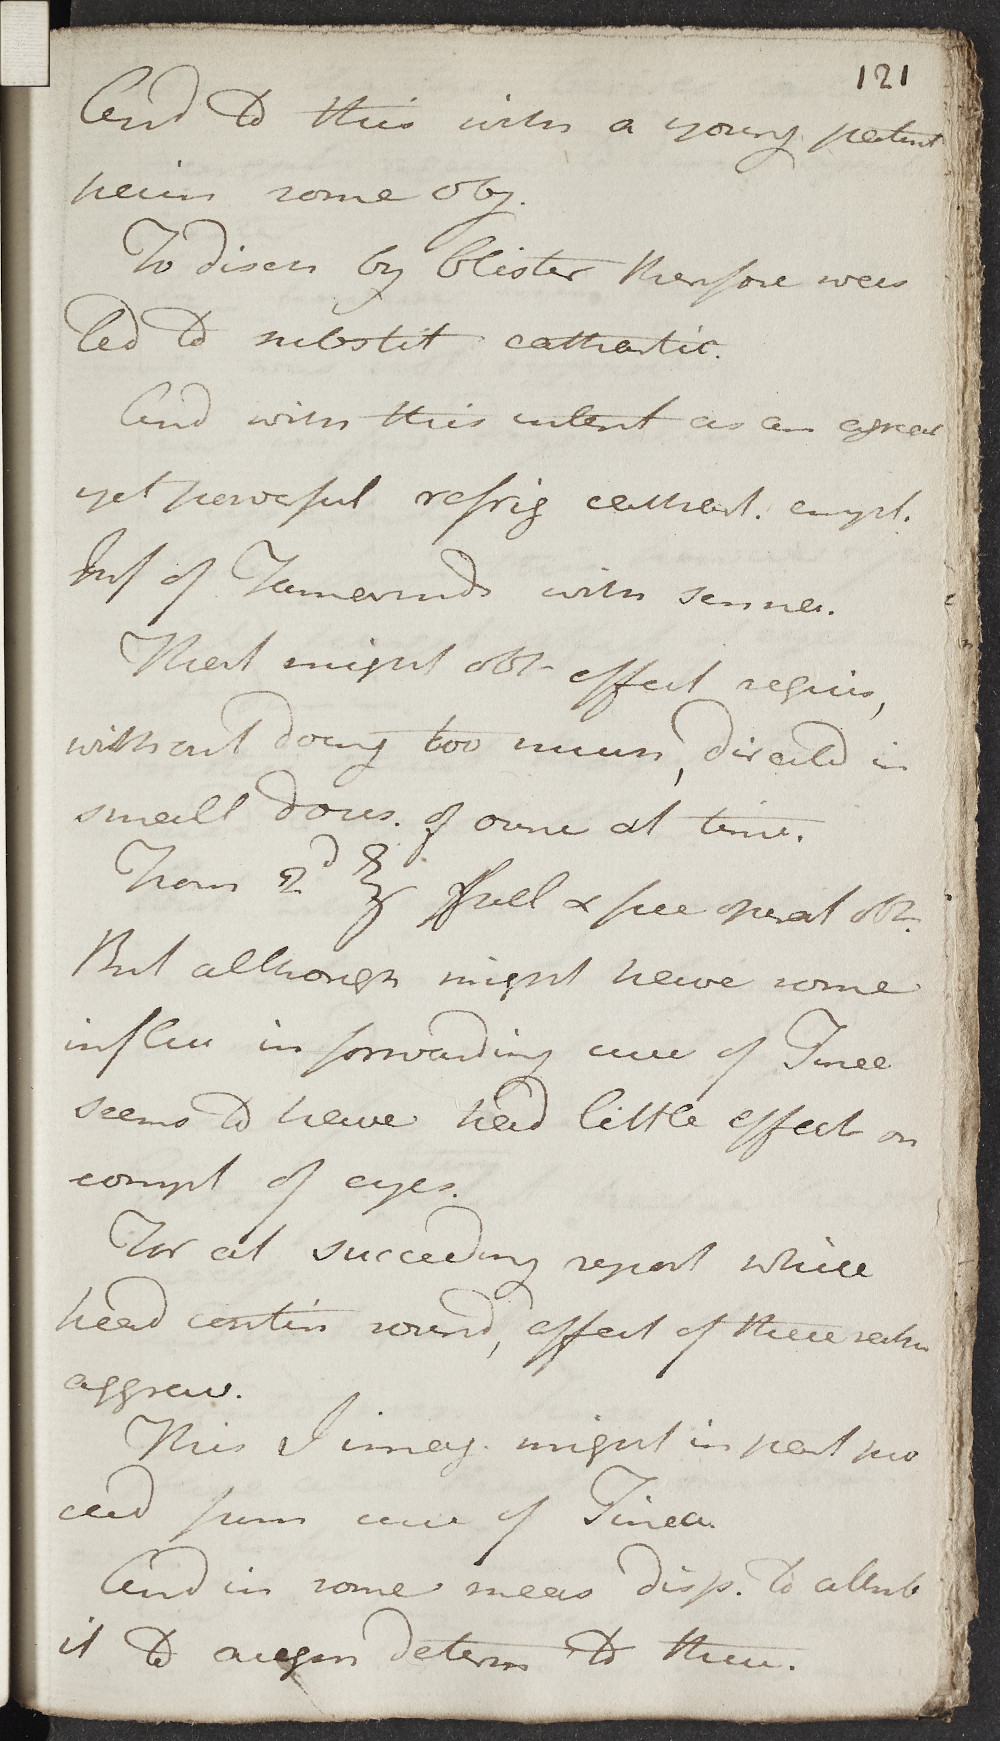 121
And to this with a young patient
pain some obj.
To discn by blister therefore was
led to substit cathartic.
And with this intent as an agreea
yet powerful refrig cathart. empl.
Inf of Tamarinds with senna.
That might obt effect requis,
without doing too much, directed in
small doses. of ounce at time.
From 2d ℥ full & free operat obt.
But although might have some
influ in forwarding cure of Tinea
seems to have had little effect on
compt of eyes.
For at succeeding report while
head contin sound, effect of these rather
aggrav.
This I imag. might in part pro
ceed from cure of Tinea
And in some meas disp. to attrib
it to augm determ to these.